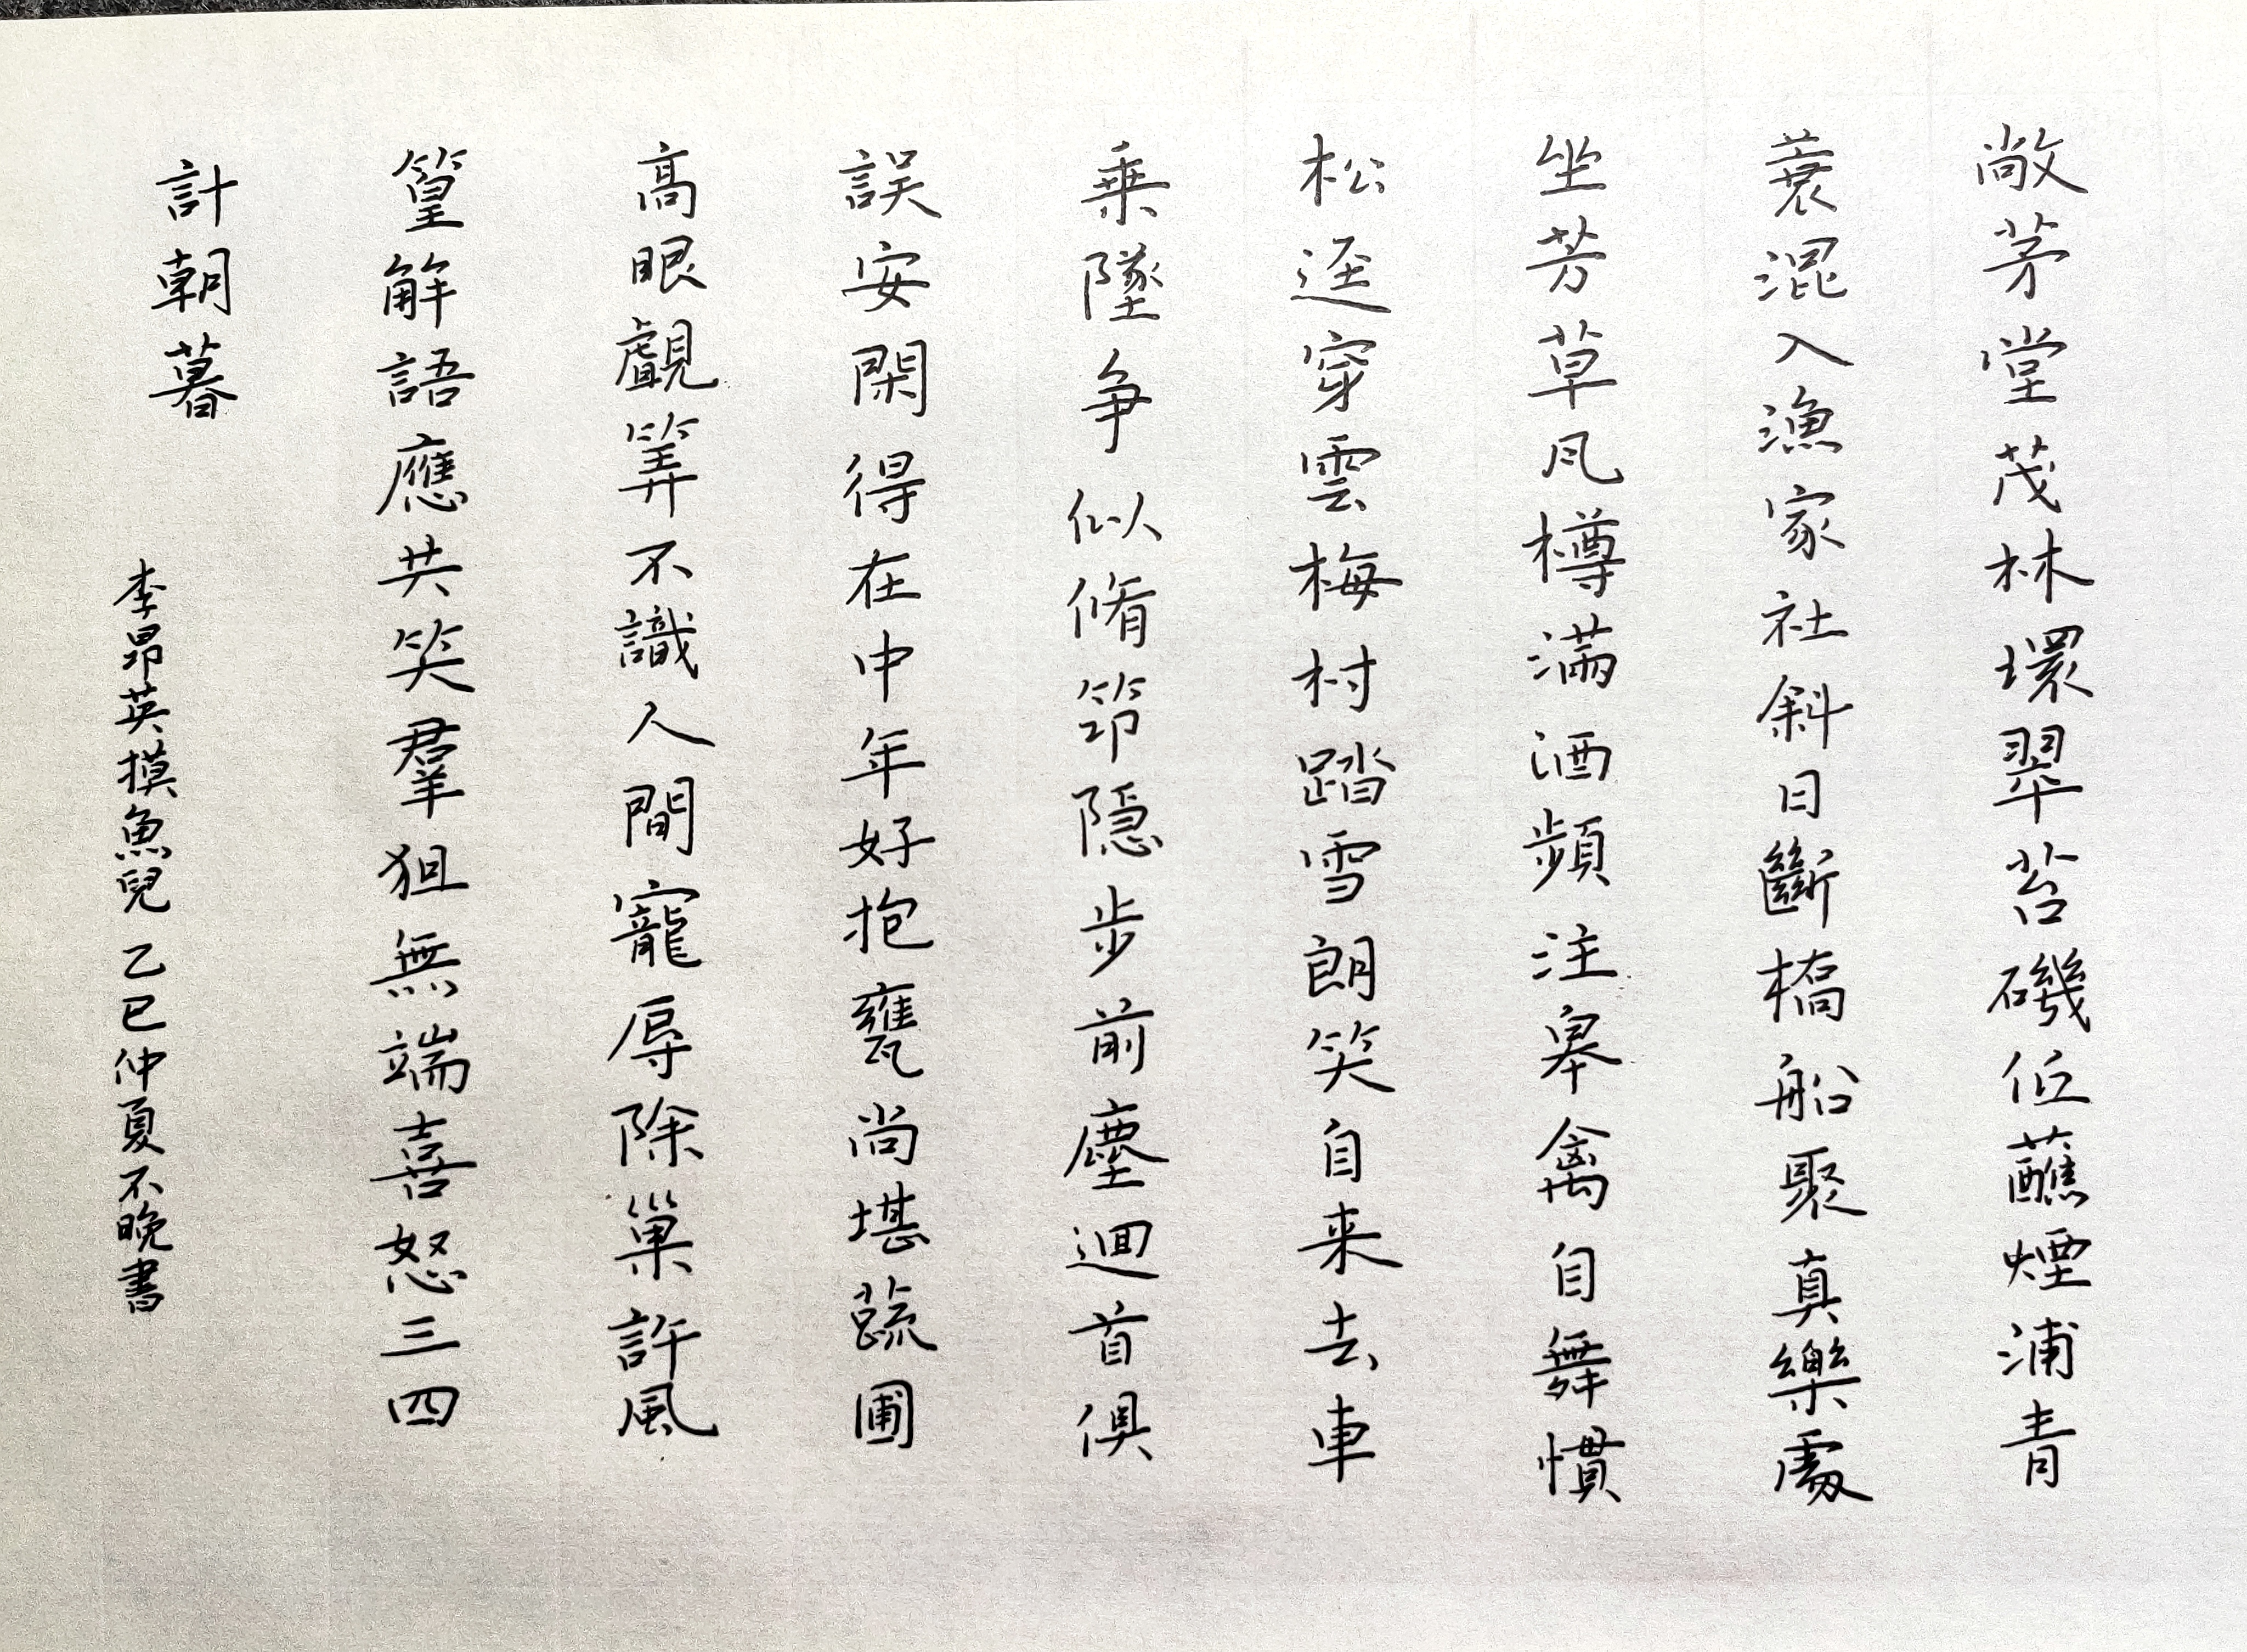 敞茅堂茂林環翠苔磯低蘸煙浦青
蓑混入漁家社斜日斷橋船聚真樂處
坐芳草風樽滿酒頻注皋禽自舞慣
松逕穿雲梅村踏雪朗笑自来去車
乘墜争似脩筇隱步前塵迴首俱
誤安閑得在中年好抱甕尚堪蔬圃
高眼覷筭不識人間寵辱除巢許風
篁解語應共笑羣狙無端喜怒三四
計朝暮
李昴英摸魚兒 乙巳仲夏不晚書